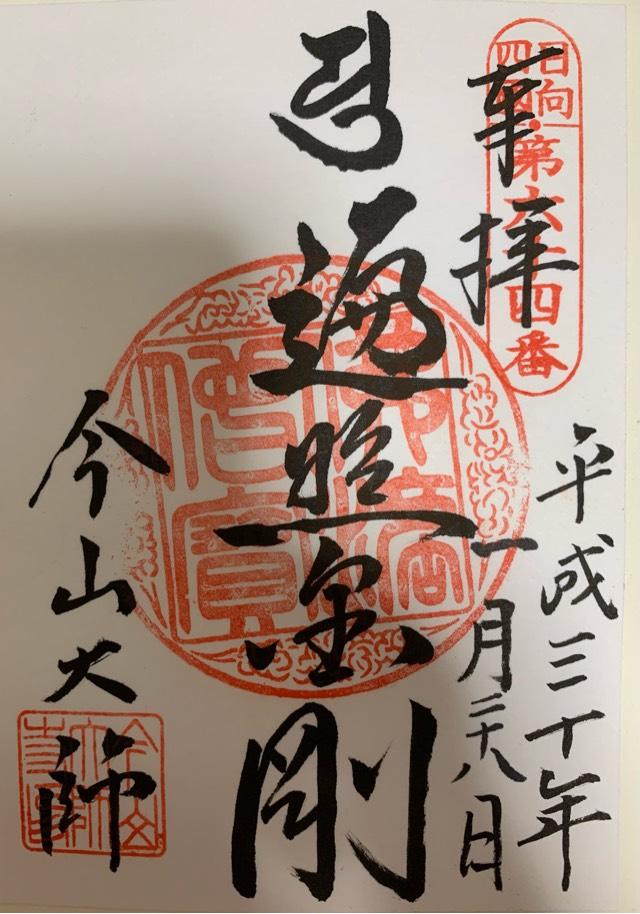 日向
四国
第六十四番
奉拝
平成三十年
一月二十八日
遍照金剛
僧寶
今山大師